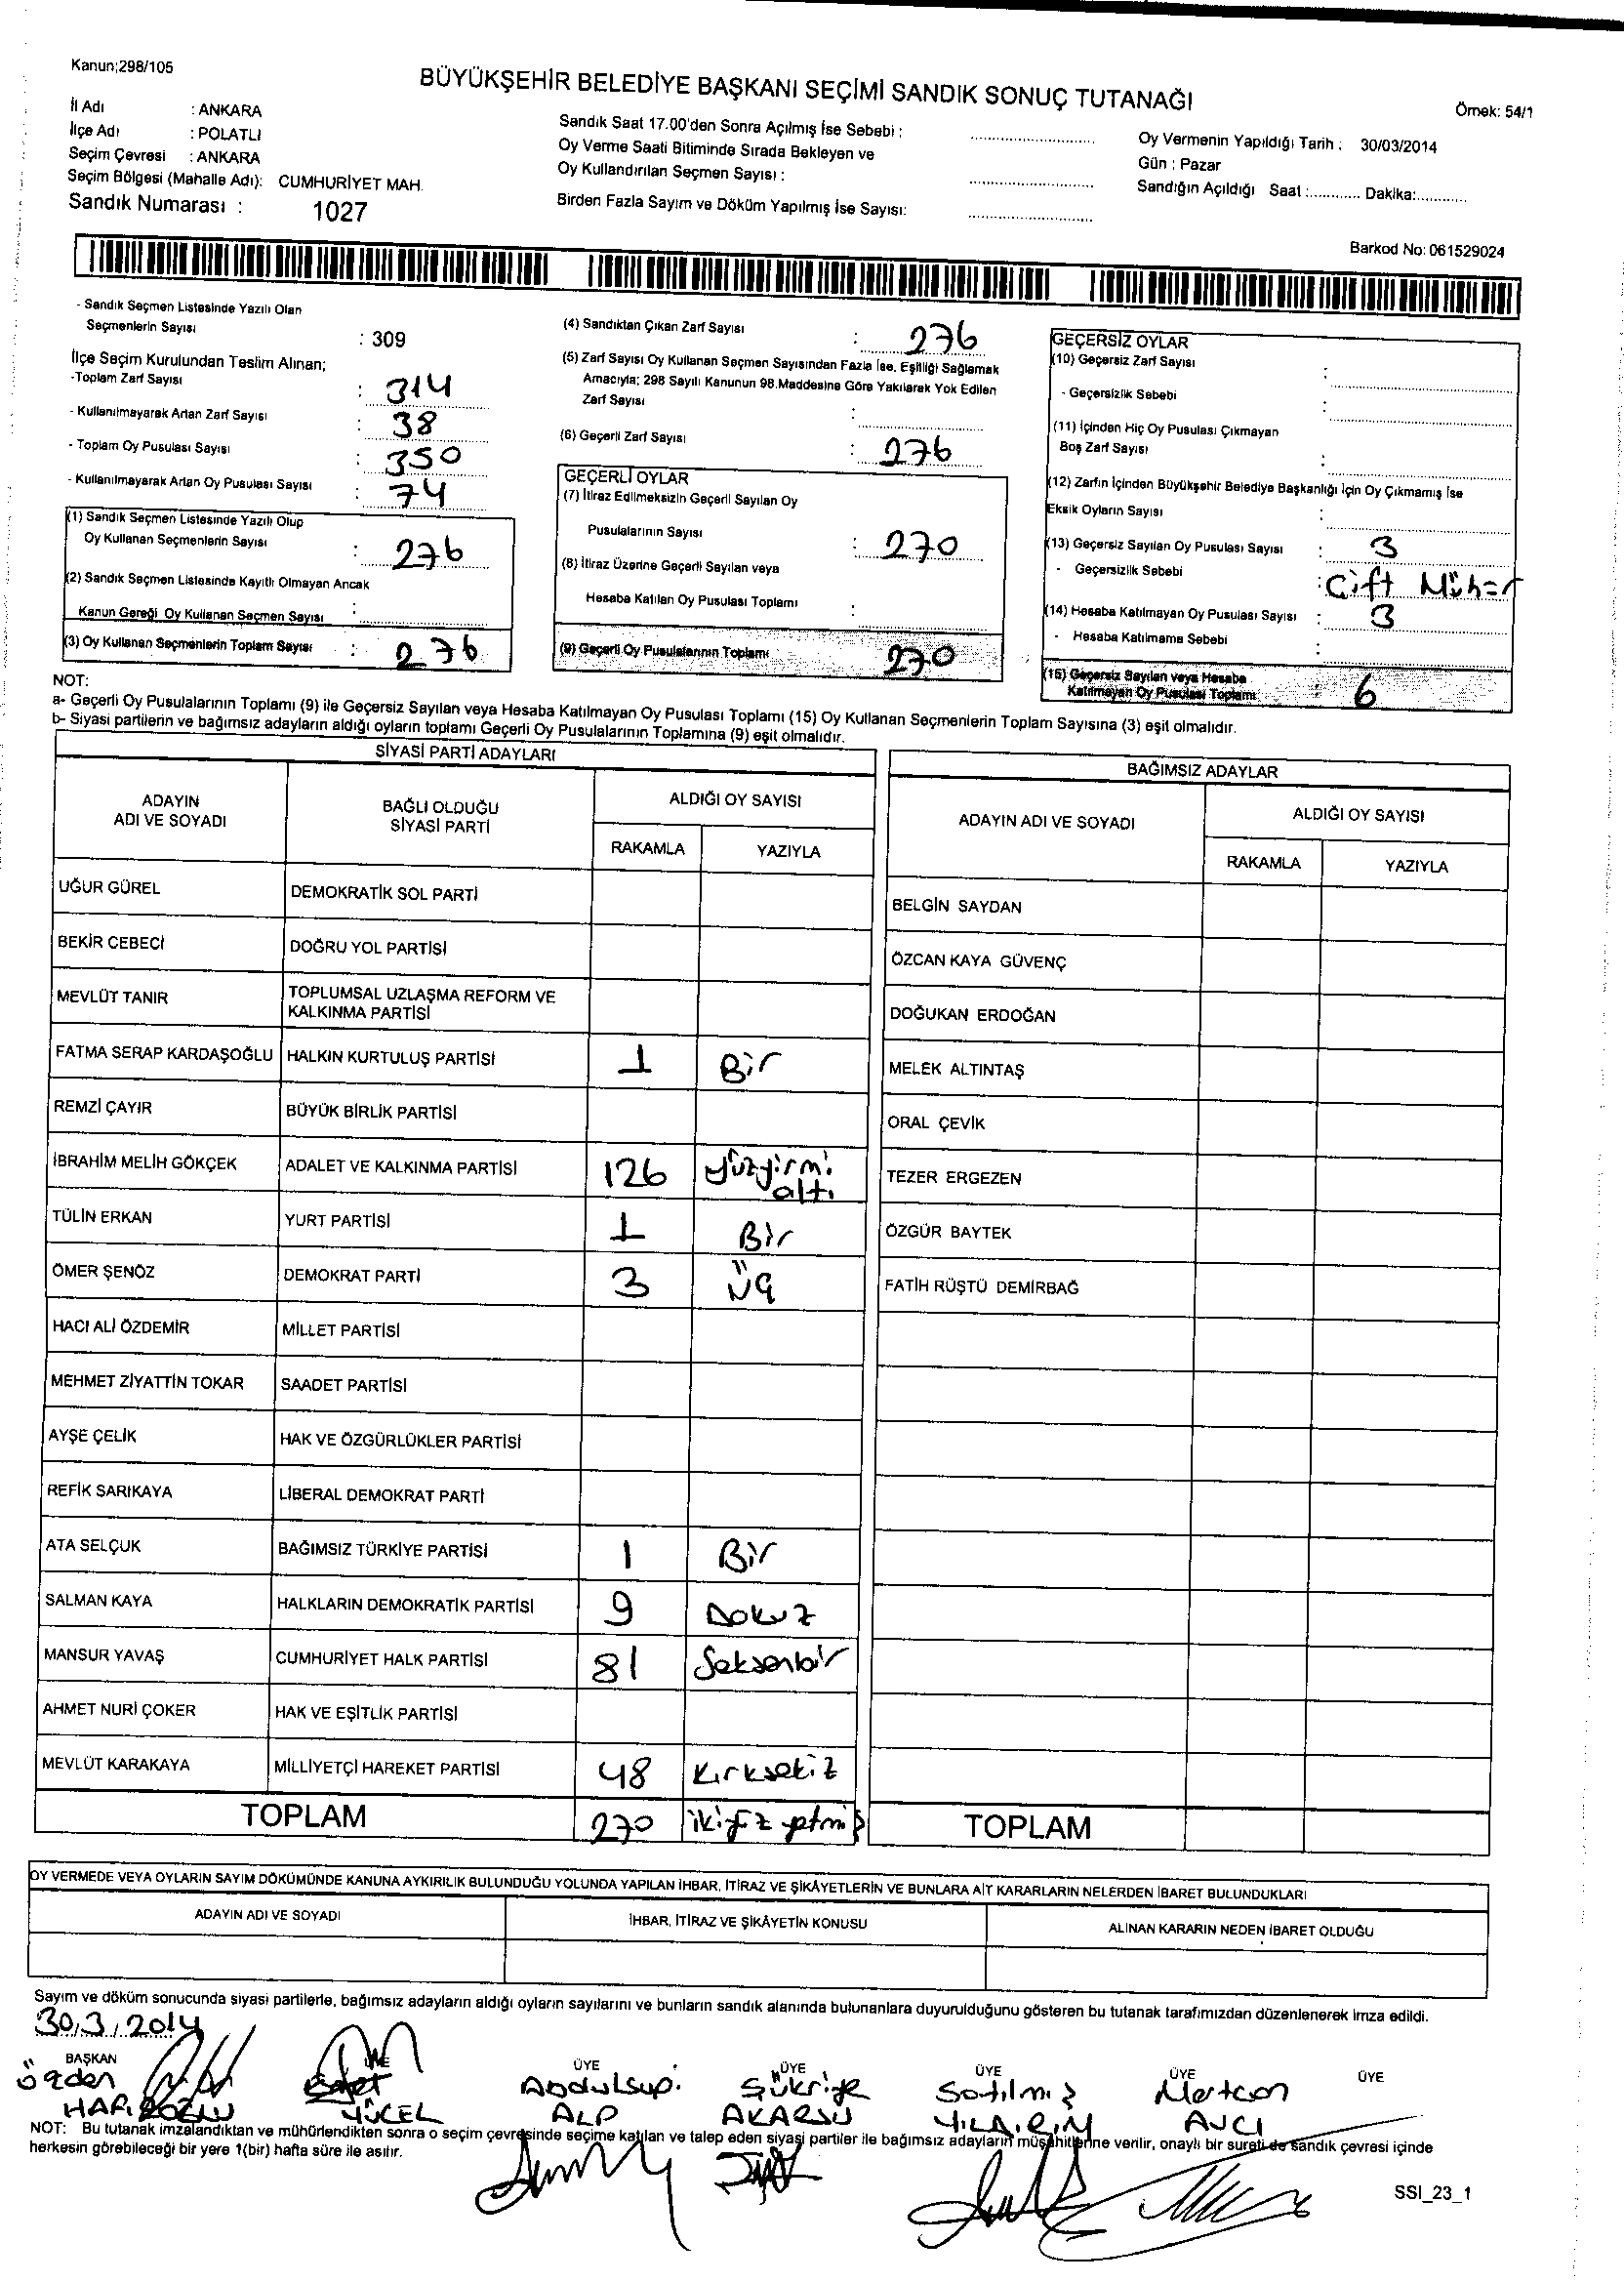 Kanun;298/105
BÜYÜKŞEHİR BELEDİYE BAŞKANI SEÇİMİ SANDIK SONUÇ TUTANAĞI
Örnek: 54/1
İl Adı : ANKARA
İlçe Adı : POLATLI
Seçim Çevresi : ANKARA
Seçim Bölgesi (Mahalle Adı): CUMHURİYET MAH.
Sandık Numarası : 1027
Sandık Saat 17.00'den Sonra Açılmış İse Sebebi :
Oy Verme Saati Bitiminde Sırada Bekleyen ve
Oy Kullandırılan Seçmen Sayısı :
Birden Fazla Sayım ve Döküm Yapılmış İse Sayısı:
Oy Vermenin Yapıldığı Tarih : 30/03/2014
Gün : Pazar
Sandığın Açıldığı Saat :............ Dakika:............
Barkod No: 061529024
- Sandık Seçmen Listesinde Yazılı Olan
Seçmenlerin Sayısı : 309
İlçe Seçim Kurulundan Teslim Alınan;
-Toplam Zarf Sayısı : 314
- Kullanılmayarak Artan Zarf Sayısı : 38
- Toplam Oy Pusulası Sayısı : 350
- Kullanılmayarak Artan Oy Pusulası Sayısı : 74
(1) Sandık Seçmen Listesinde Yazılı Olup
Oy Kullanan Seçmenlerin Sayısı : 276
(2) Sandık Seçmen Listesinde Kayıtlı Olmayan Ancak
Kanun Gereği Oy Kullanan Seçmen Sayısı :
(3) Oy Kullanan Seçmenlerin Toplam Sayısı : 276
(4) Sandıktan Çıkan Zarf Sayısı : 276
(5) Zarf Sayısı Oy Kullanan Seçmen Sayısından Fazla İse, Eşitliği Sağlamak
Amacıyla; 298 Sayılı Kanunun 98.Maddesine Göre Yakılarak Yok Edilen
Zarf Sayısı :
(6) Geçerli Zarf Sayısı : 276
GEÇERLİ OYLAR
(7) İtiraz Edilmeksizin Geçerli Sayılan Oy
Pusulalarının Sayısı : 270
(8) İtiraz Üzerine Geçerli Sayılan veya
Hesaba Katılan Oy Pusulası Toplamı :
(9) Geçerli Oy Pusulalarının Toplamı 270
GEÇERSİZ OYLAR
(10) Geçersiz Zarf Sayısı :
- Geçersizlik Sebebi :
(11) İçinden Hiç Oy Pusulası Çıkmayan
Boş Zarf Sayısı :
(12) Zarfın İçinden Büyükşehir Belediye Başkanlığı İçin Oy Çıkmamış İse
Eksik Oyların Sayısı :
(13) Geçersiz Sayılan Oy Pusulası Sayısı : 3
- Geçersizlik Sebebi : Çift Mühür
(14) Hesaba Katılmayan Oy Pusulası Sayısı : 3
- Hesaba Katılmama Sebebi :
(15) Geçersiz Sayılan veya Hesaba
Katılmayan Oy Pusulası Toplamı : 6
NOT:
a- Geçerli Oy Pusulalarının Toplamı (9) ile Geçersiz Sayılan veya Hesaba Katılmayan Oy Pusulası Toplamı (15) Oy Kullanan Seçmenlerin Toplam Sayısına (3) eşit olmalıdır.
b- Siyasi partilerin ve bağımsız adayların aldığı oyların toplamı Geçerli Oy Pusulalarının Toplamına (9) eşit olmalıdır.
SİYASİ PARTİ ADAYLARI
ADAYIN ADI VE SOYADI BAĞLI OLDUĞU SİYASİ PARTİ ALDIĞI OY SAYISI
RAKAMLA YAZIYLA
UĞUR GÜREL DEMOKRATİK SOL PARTİ
BEKİR CEBECİ DOĞRU YOL PARTİSİ
MEVLÜT TANIR TOPLUMSAL UZLAŞMA REFORM VE KALKINMA PARTİSİ
FATMA SERAP KARDAŞOĞLU HALKIN KURTULUŞ PARTİSİ 1 Bir
REMZİ ÇAYIR BÜYÜK BİRLİK PARTİSİ
İBRAHİM MELİH GÖKÇEK ADALET VE KALKINMA PARTİSİ 126 yüzyirmi altı
TÜLİN ERKAN YURT PARTİSİ 1 Bir
ÖMER ŞENÖZ DEMOKRAT PARTİ 3 üç
HACI ALİ ÖZDEMİR MİLLET PARTİSİ
MEHMET ZİYATTİN TOKAR SAADET PARTİSİ
AYŞE ÇELİK HAK VE ÖZGÜRLÜKLER PARTİSİ
REFİK SARIKAYA LİBERAL DEMOKRAT PARTİ
ATA SELÇUK BAĞIMSIZ TÜRKİYE PARTİSİ 1 Bir
SALMAN KAYA HALKLARIN DEMOKRATİK PARTİSİ 9 Dokuz
MANSUR YAVAŞ CUMHURİYET HALK PARTİSİ 81 Seksenbir
AHMET NURİ ÇOKER HAK VE EŞİTLİK PARTİSİ
MEVLÜT KARAKAYA MİLLİYETÇİ HAREKET PARTİSİ 48 Kırksekiz
TOPLAM 270 ikiyüz yetmiş
BAĞIMSIZ ADAYLAR
ADAYIN ADI VE SOYADI ALDIĞI OY SAYISI
RAKAMLA YAZIYLA
BELGİN SAYDAN
ÖZCAN KAYA GÜVENÇ
DOĞUKAN ERDOĞAN
MELEK ALTINTAŞ
ORAL ÇEVİK
TEZER ERGEZEN
ÖZGÜR BAYTEK
FATİH RÜŞTÜ DEMİRBAĞ
TOPLAM
OY VERMEDE VEYA OYLARIN SAYIM DÖKÜMÜNDE KANUNA AYKIRILIK BULUNDUĞU YOLUNDA YAPILAN İHBAR, İTİRAZ VE ŞİKÂYETLERİN VE BUNLARA AİT KARARLARIN NELERDEN İBARET BULUNDUKLARI
ADAYIN ADI VE SOYADI İHBAR, İTİRAZ VE ŞİKÂYETİN KONUSU ALINAN KARARIN NEDEN İBARET OLDUĞU
Sayım ve döküm sonucunda siyasi partilerle, bağımsız adayların aldığı oyların sayılarını ve bunların sandık alanında bulunanlara duyurulduğunu gösteren bu tutanak tarafımızdan düzenlenerek imza edildi.
30/3/2014
BAŞKAN ÜYE ÜYE ÜYE ÜYE ÜYE ÜYE
Özden Abdulsup. Şükriye Satılmış Mertcan
YÜCEL ALP AKARSU YILDIRIM AVCI
NOT: Bu tutanak imzalandıktan ve mühürlendikten sonra o seçim çevresinde seçime katılan ve talep eden siyasi partiler ile bağımsız adayların müşahitlerine verilir, onaylı bir sureti de sandık çevresi içinde
herkesin görebileceği bir yere 1(bir) hafta süre ile asılır.
SSI_23_1